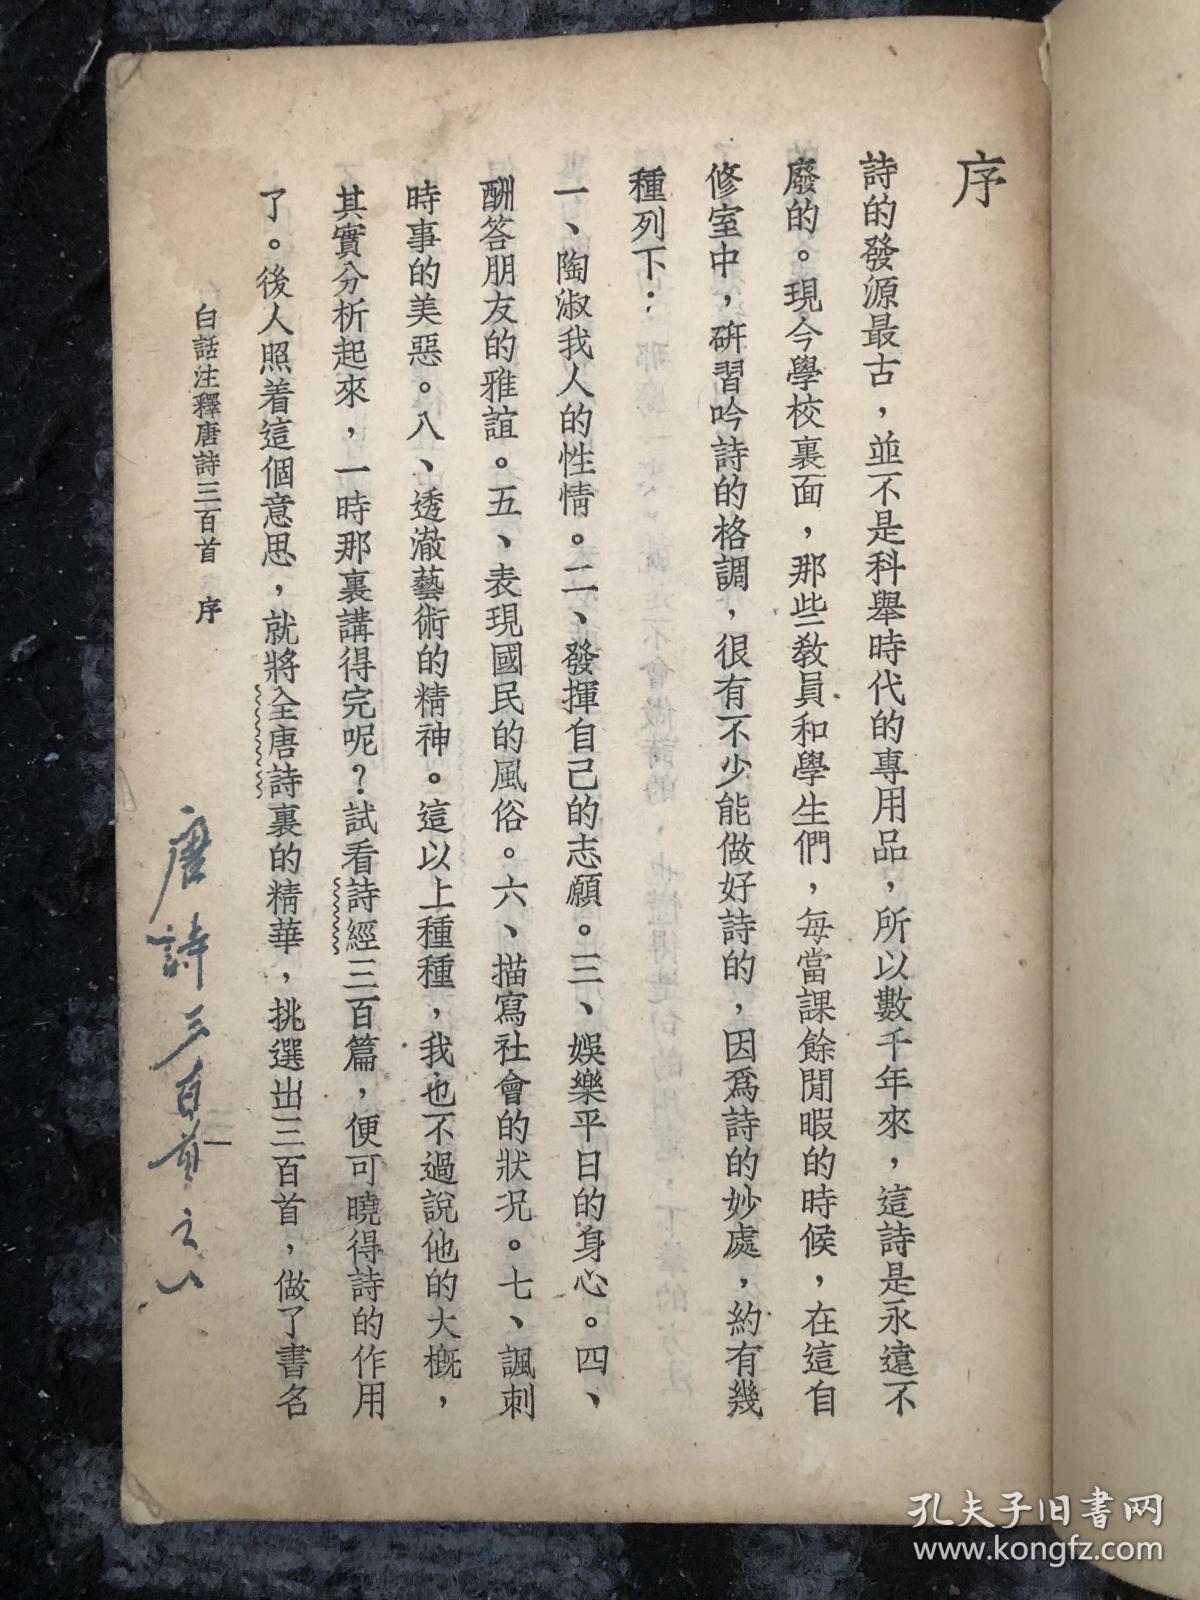 序
詩的發源最古，並不是科舉時代的專用品，所以數千年來，這詩是永遠不
廢的。現今學校裏面，那些教員和學生們，每當課餘閒暇的時候，在這自
修室中，研習吟詩的格調，很有不少能做好詩的，因爲詩的妙處，約有幾
種列下：
一、陶淑我人的性情。二、發揮自己的志願。三、娛樂平日的身心。四、
酬答朋友的雅誼。五、表現國民的風俗。六、描寫社會的狀況。七、諷刺
時事的美惡。八、透澈藝術的精神。這以上種種，我也不過說他的大概，
其實分析起來，一時那裏講得完呢？試看詩經三百篇，便可曉得詩的作用
了。後人照着這個意思，就將全唐詩裏的精華，挑選出三百首，做了書名
白話注釋唐詩三百首 序
唐詩三百首之八
孔夫子旧書网
www.kongfz.com